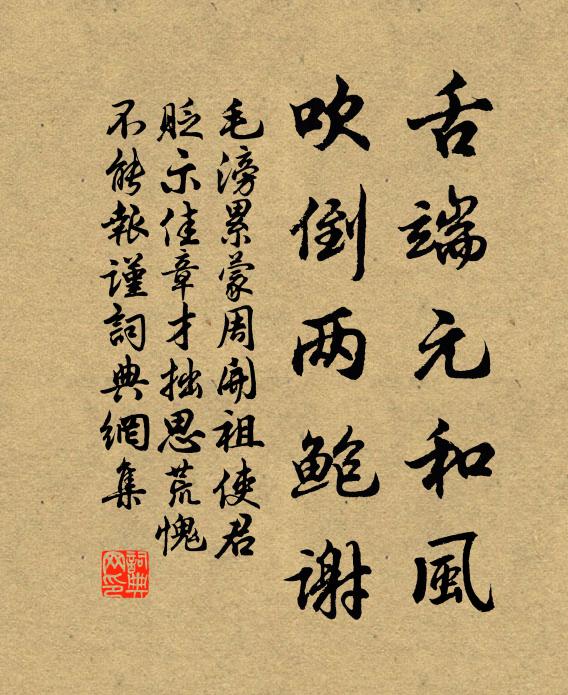 舌端元和風
吹倒两鮑謝
毛滂累蒙周開祖使君
貶示佳章才拙思荒愧
不能報謹詞典網集
詞典網印